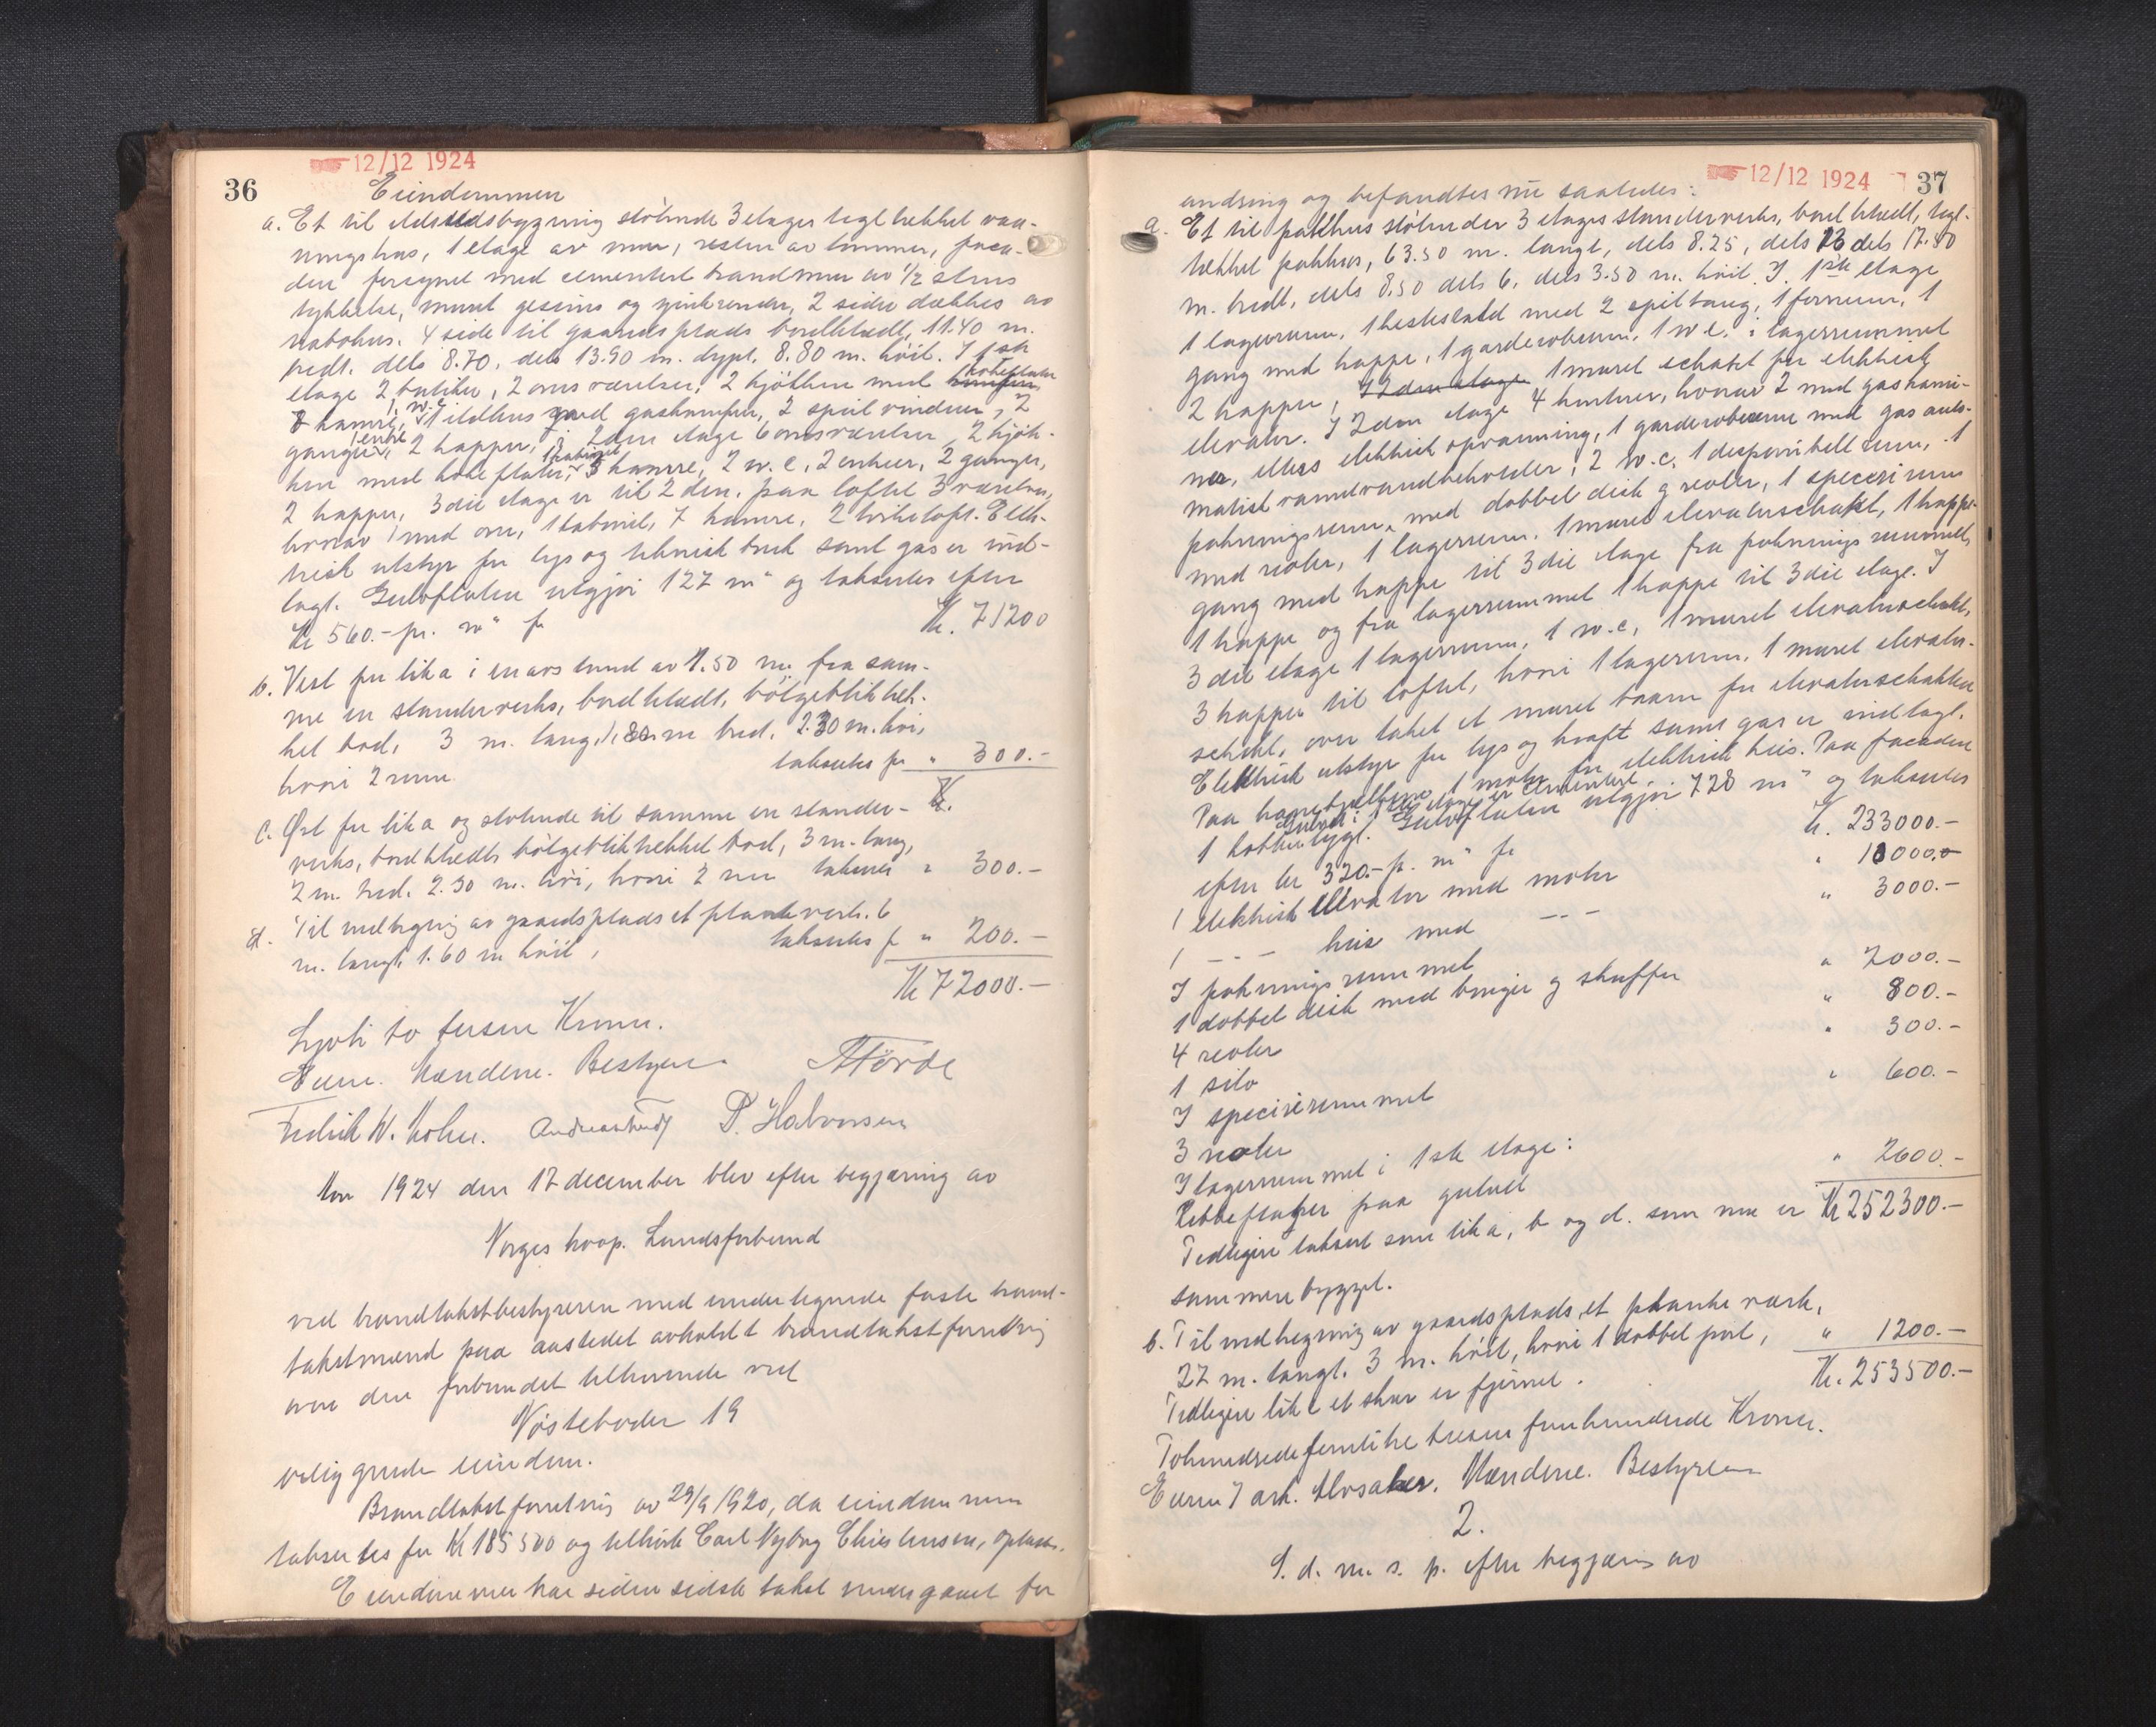 12/12 1924
36
Eiendommen
a. Et til ildstedsbygning stötende 3 etages teglhekket vaa-
ningshus, 1 etage av mur, resten av tömmer, faca-
den forsynet med cementert brandmur av 1/2 stens
tykkelse, muret gesims og zinkrender, 2 sider dækkes av
nabohus. 4 side til gaardsplads bordklædt, 11.40 m.
bredt. dels 8.70, dels 13.90 m. dypt. 8.80 m. höit. I 1ste
etage 2 butiker, 2 ovnsværelser, 2 kjökken med kokeplater
kamre, 1 w.c. 1 ildhus med gaskamfur, 2 speilvinduer, 2
ganger, 1 entre, 2 trapper, i 2den etage 6 ovnsværelser, 2 kjök-
ken med kokeplater, 1 kabinet 3 kamre, 2 w.c, 2 entreer, 2 ganger,
2 trapper, 3die etage er til 2den. paa loftet 3 værelser,
hvorav 1 med ovn, 1 kabinet, 7 kamre, 2 törkeloft. Elek-
trisk utstyr for lys og teknisk bruk samt gas er ind-
lagt. Gulvflaten utgjör 127 m² og takseres efter
Kr 560.- pr. m² for Kr. 71200
b. Vest for lit a i en avstand av 1.50 m. fra sam-
me en standerverks, bordklædt, bölgeblikktek-
ket bod, 3 m. lang, 1.80 m bred, 2.30 m. höi,
hvori 2 rum. takseres for " 300.-
Kr.
c. Øst for lit a og stötende til samme en stander-
verks, bordklædt bölgeblikktekket bod, 3 m. lang,
2 m. bred. 2.30 m. höi, hvori 2 rum takseres " 300.-
d. Til indhegning av gaardsplads et plankeverk. 6
m. langt, 1.60 m höit, takseres for " 200.-
Kr 72000.-
Sytti to tusene Kroner.
Eiern. Mændene. Bestyreren
Fredrik W. Holm. P. Halvorsen
Aar 1924 den 12 december blev efter begjæring av
Norges koop. Landsforbund
ved brandtakstbestyreren med undertegnede faste brand-
takstmænd paa aastedet avholdt brandtakstforretning
over den forbundet tilhörende ved
Nösteboder 19
beliggende eiendom.
Brandtakstforretning av 29/9 1920, da eiendommen
taksertes for Kr 185500 og tilhörte Carl Nyborg Christensen, oplæst.
Eiendommen har siden sidste takst undergaaet for
12/12 1924
37
andring og befandtes nu saaledes:
a. Et til pakhus stötende 3 etages standerverks, bordklædt, tegl-
tekket pakhus, 63.50 m. langt, dels 8.25, dels 13 dels 17.80
m. bredt, dels 8.50 dels 6, dels 3.50 m. höit. I 1ste etage
1 lagerrum, 1 hestestald med 2 spiltaug, 1 forrum, 1
gang med trappe, 1 garderoberum, 1 w.c. i lagerrummet
2 trapper, I 2den etage 1 muret schakt for elektrisk
elevator. I 2den etage 4 kontorer, hvorav 2 med gaskami-
ner, ellers elektrisk opvarming, 1 garderoberum med gas auto-
matisk varmtvandbeholder, 2 w.c, 1 disponibelt rum, 1
pakningsrum, med dobbel disk og reoler, 1 specerirum
med reoler, 1 lagerrum. 1 muret elevatorschakt, 1 trappe-
gang med trappe til 3die etage fra pakningsrummet,
1 trappe og fra lagerrummet 1 trappe til 3die etage. I
3die etage 1 lagerrum, 1 w.c, 1 muret elevatorschakt,
3 trapper til loftet, hvori 1 lagerrum, 1 muret elevator-
schakt, over taket et muret taarn for elevatorschakten
Elektrisk utstyr for lys og kraft samt gas er indlagt.
Paa hanebjelkene 1 motor for elektrisk heis. Paa facaden
1 kobbertygt. Gulvet i 1ste etage er cementert. Gulvflaten utgjör 728 m² og takseres
efter kr 320.- pr. m² for Kr. 233000.-
1 elektrisk elevator med motor " 10000.-
1 -- heis med -- " 3000.-
I pakningsrummet
1 dobbel disk med binger og skuffer " 2000.-
4 reoler " 800.-
1 silo " 300.-
I specerirummet
3 reoler " 600.-
I lagerrummet i 1ste etage:
Ribbeflaker paa gulvet " 2600.-
Tidligere taksert som lit a, b og d. som nu er Kr 252300.-
sammenbygget.
b. Til indhegning av gaardsplads, et plankeværk,
27 m. langt. 3 m. höit, hvori 1 dobbel port, " 1200.-
Tidligere lit c et skur er fjernet. Kr. 253500.-
Tohundredefemtitre tusen femhundrede Kroner.
Eieren 7 ark. Alvsaker. Mændene. Bestyreren
2.
S. d. m. s. p. efter begjæring av